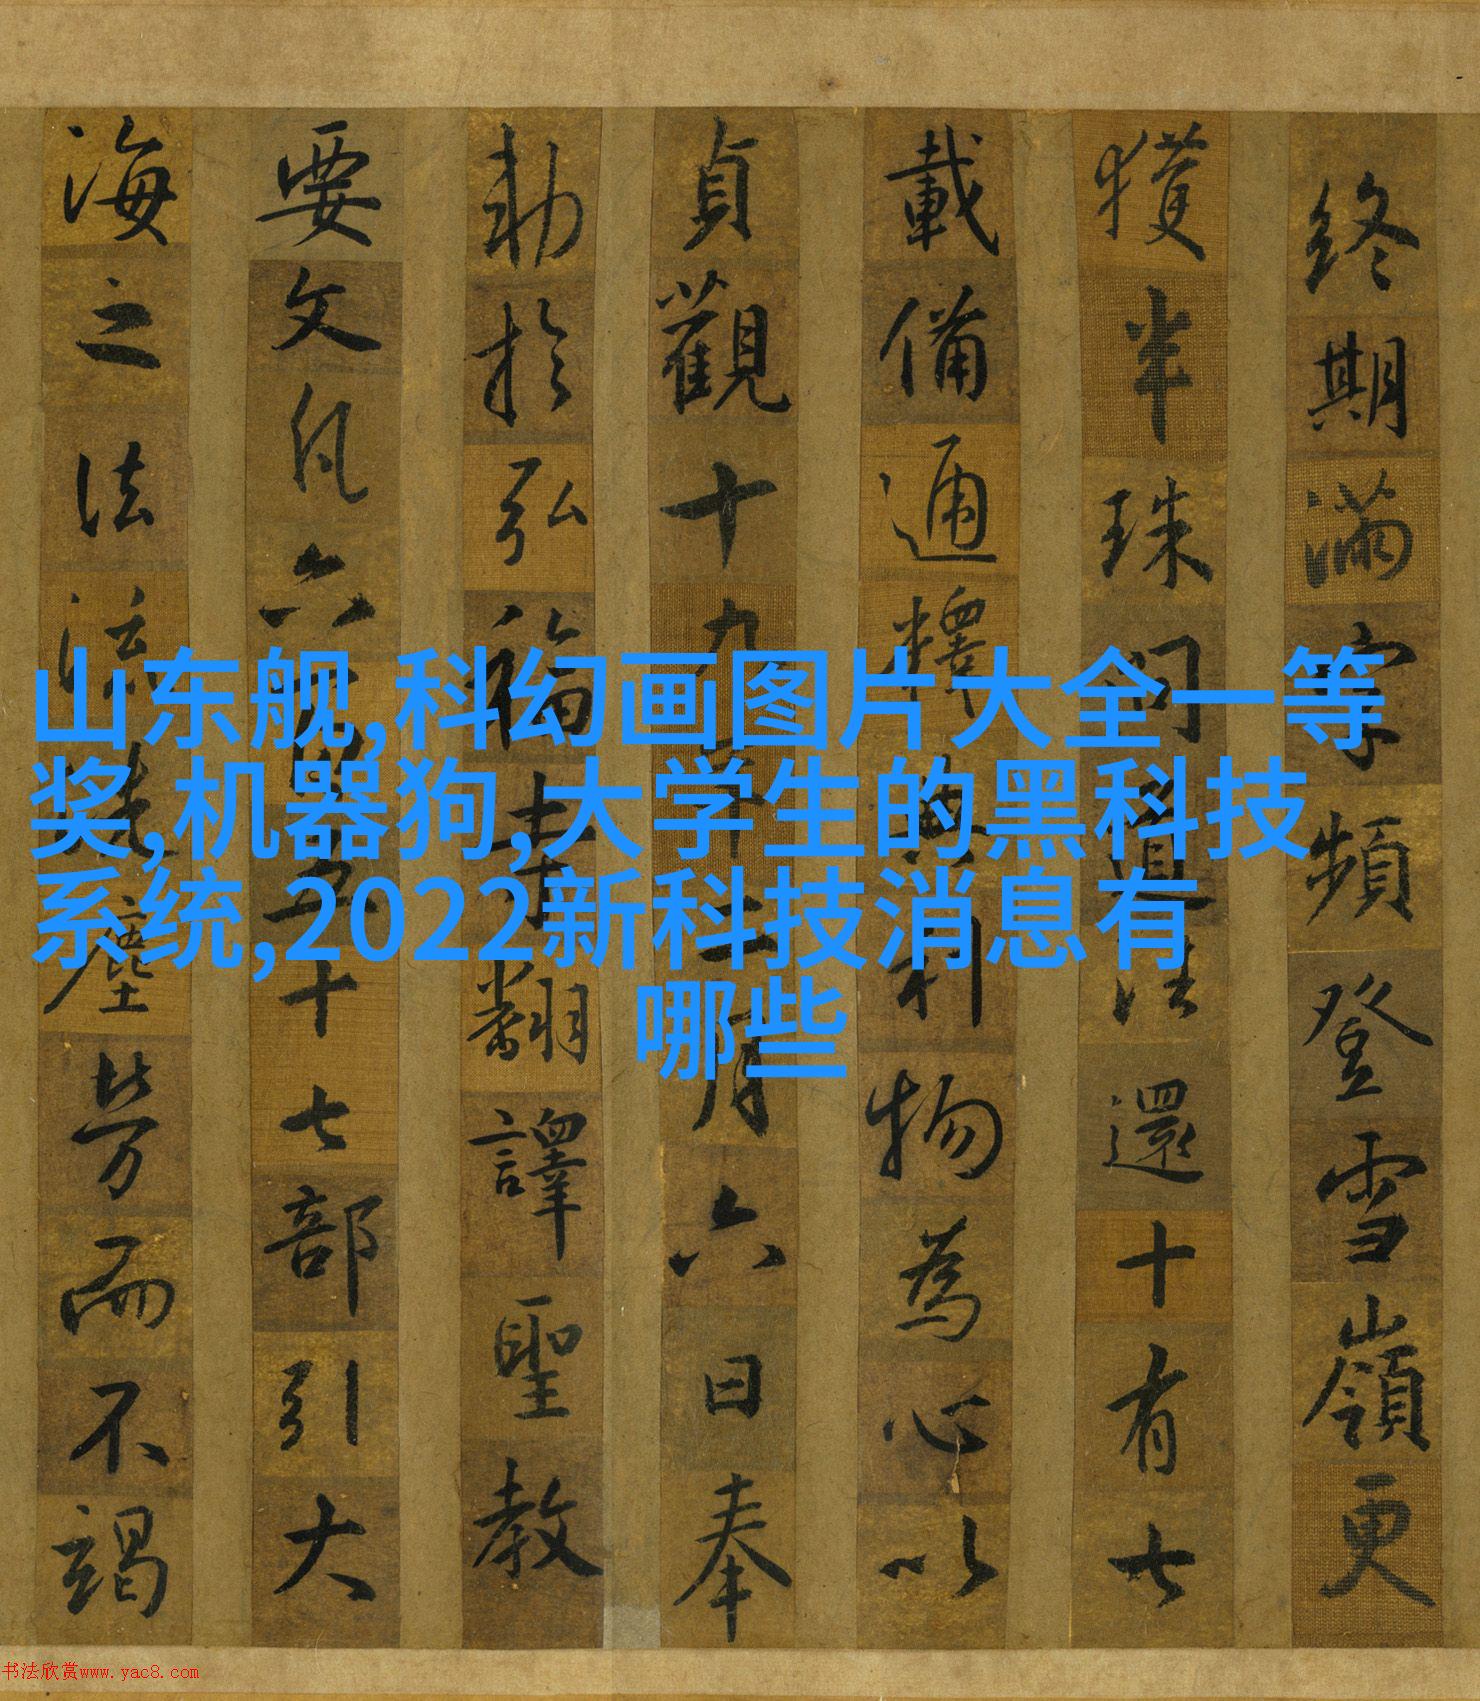 終期滿字頻登雪嶺更
獲半珠問道法還十有七
載備通釋典利物為心以
貞觀十九年二月六日奉
勅於弘福寺翻譯聖教
要文凡六百五十七部引大
海之法流洗塵勞而不竭
山东舰,科幻画图片大全一等
奖,机器狗,大学生的黑科技
系统,2022新科技消息有
哪些
书法欣赏www.yac8.com